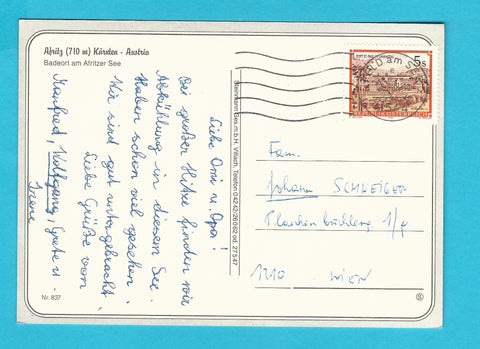 Afritz (710 m) Kärnten - Austria
Badeort am Afritzer See
Liebe Omi u. Opa!
Bei großer Hitze finden wir
Abkühlung in diesem See.
Haben schon viel gesehen.
Wir sind gut untergebracht.
Liebe Grüße von
Manfred, Wolfgang, Grete u.
Irene
Nr. 837
Ges.m.b.H. Villach, Telefon 04242/26062 od. 27547
5 S
REPUBLIK ÖSTERREICH
am SEE
Fam.
Johann SCHWEIGER
1/9
1210 WIEN